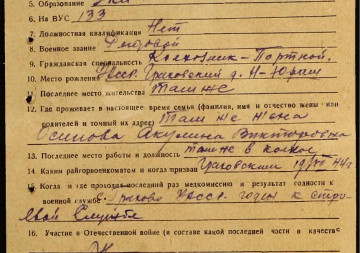 5. Образование
6. На ВУС 133
7. Должностная квалификация Нет
8. Военное звание Рядовой
9. Гражданская специальность Колхозник-Портной.
10. Место рождения УССР. Граковский д.
11. Последнее место жительства Там же
12. Где проживает в настоящее время семья (фамилия, имя и отчество жены или
родителей и точный их адрес) Там же жена
Осипова Акулина Викторовна
13. Последнее место работы и должность там же в колхоз
14. Каким райгорвоенкоматом и когда призван Граковским 44г
15. Когда и где проходил последний раз медкомиссию и результат годности к
военной службе Граково УССР. годен к стро-
евой службе
16. Участие в Отечественной войне (в составе какой последней части и в качестве